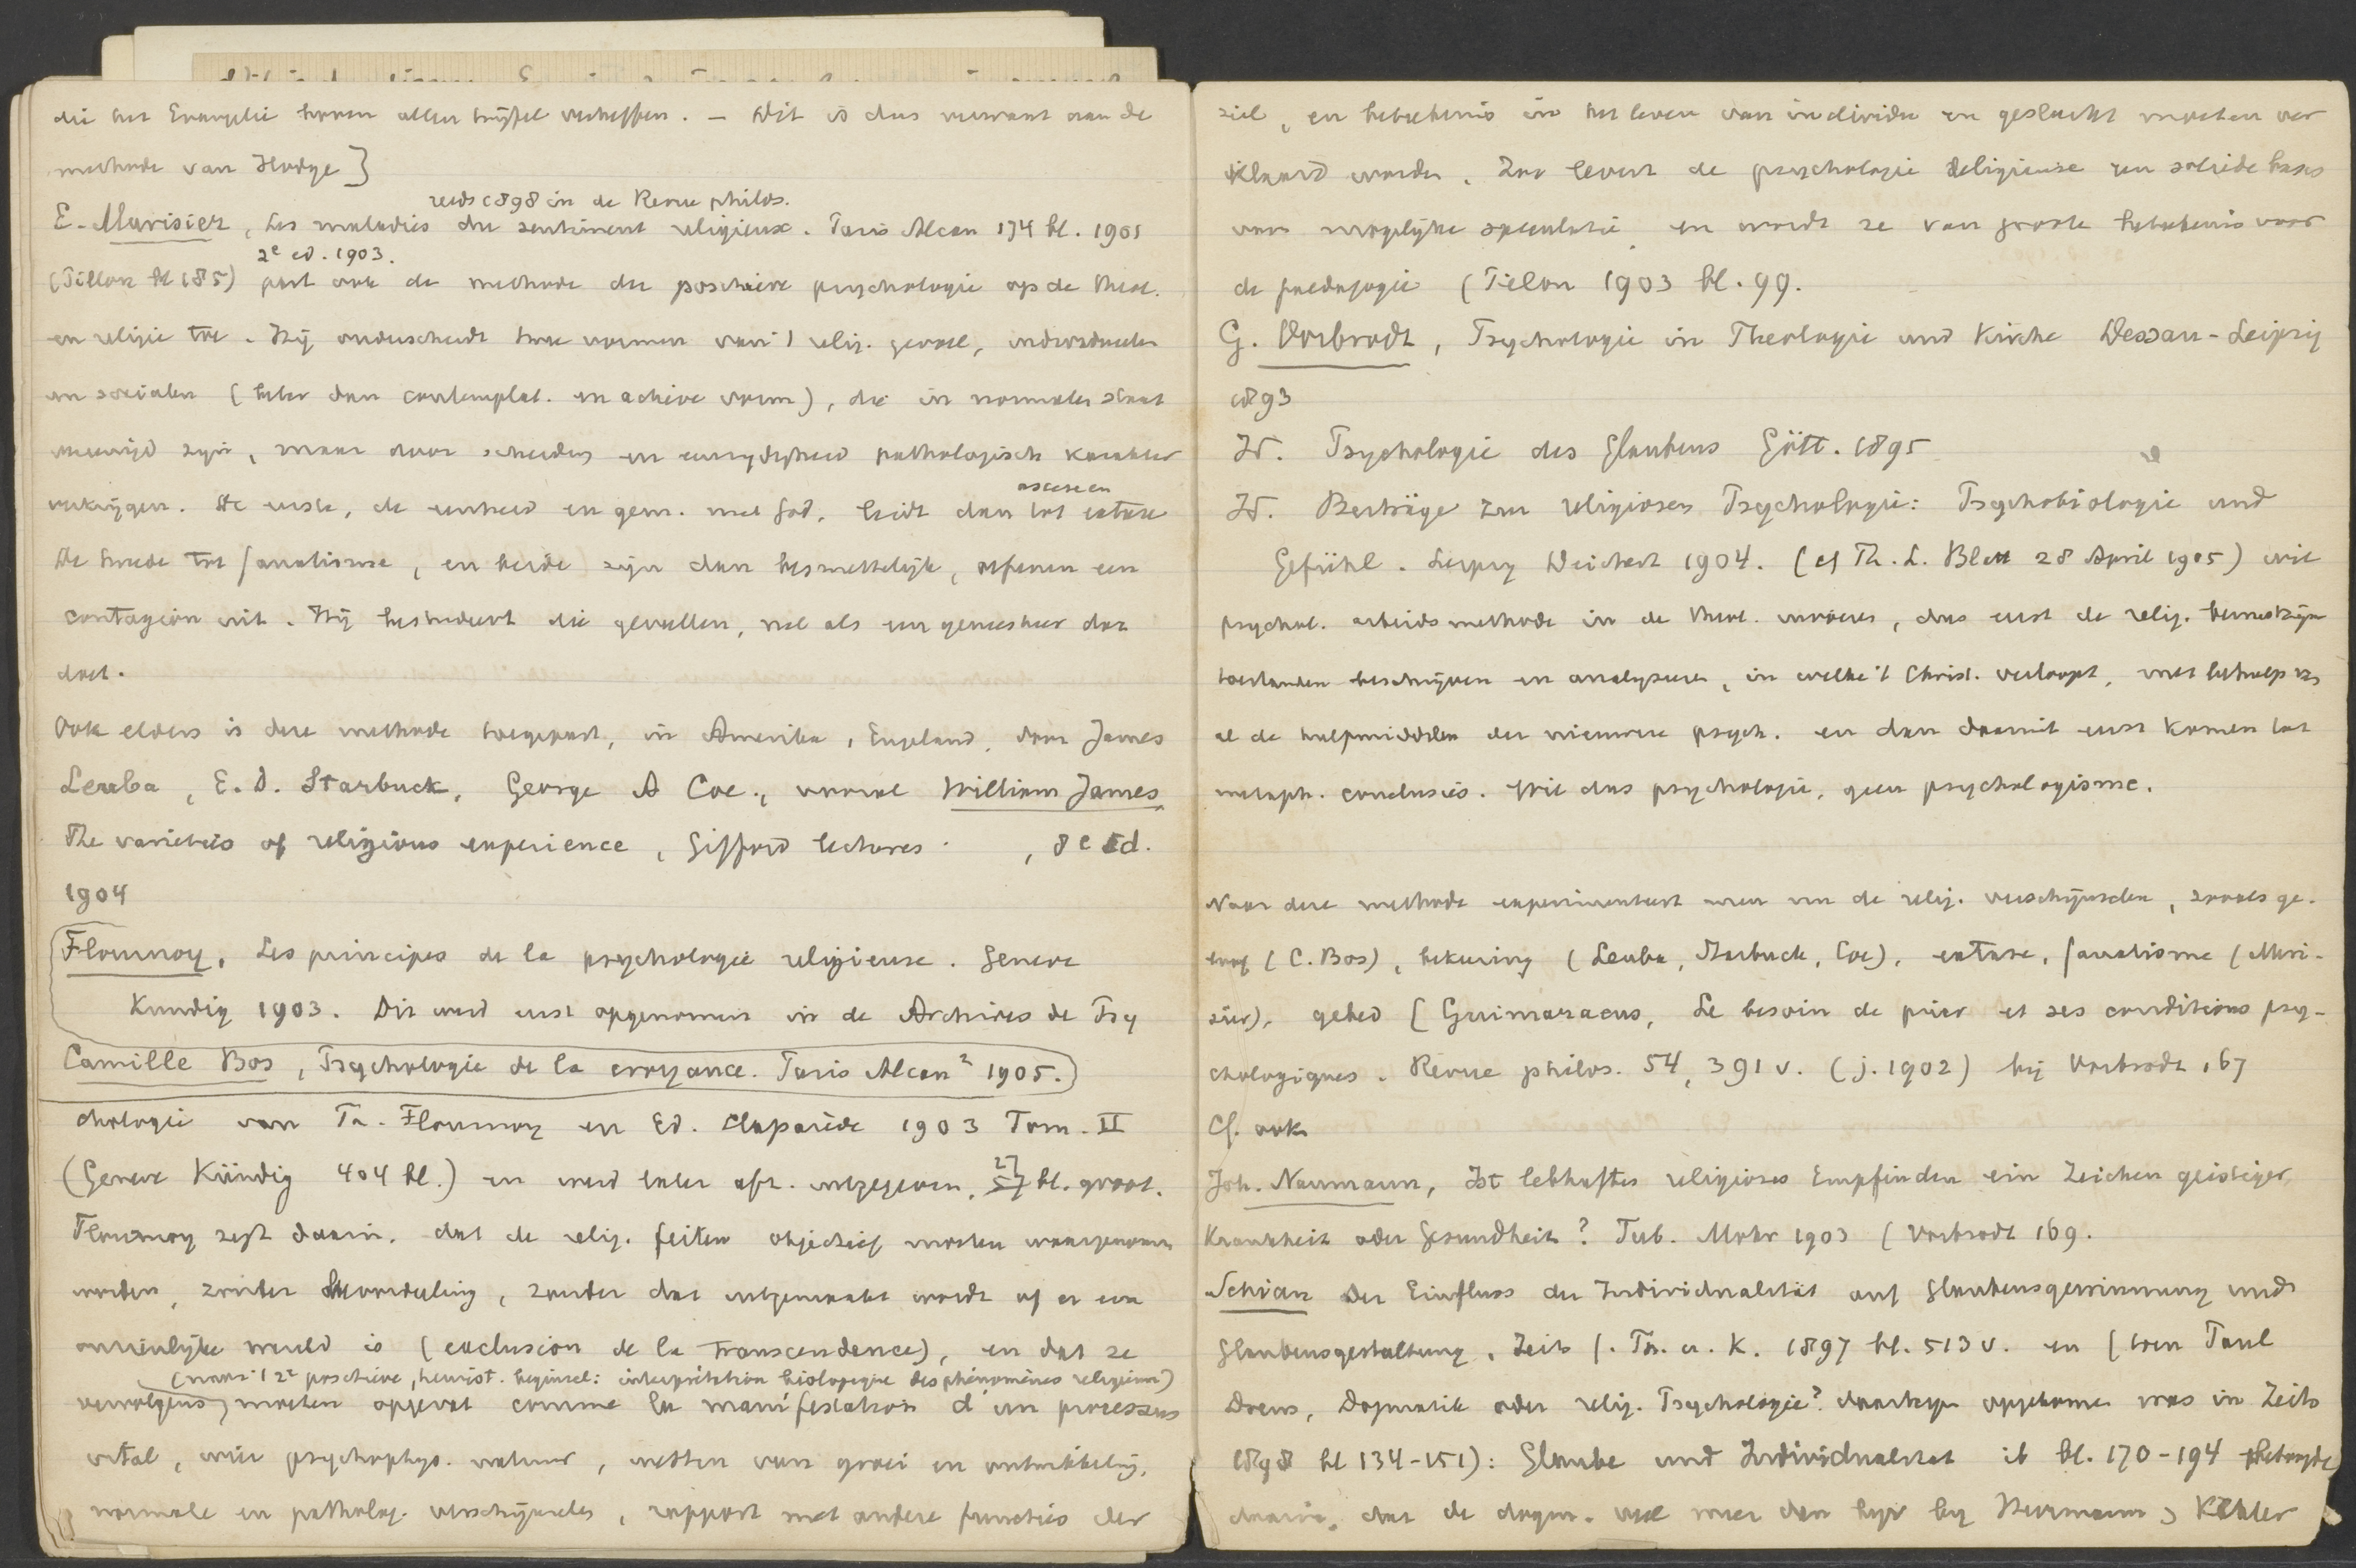 die het Evangelie boven allen twijfel verheffen. – Dit is dus verwant aan de
methode van Hodge]
reeds 1898 in de Revue philos.
E. Murisier, Les maladies du sentiment religieux. Paris Alcan 174 bl. 1901
2e ed. 1903.
(Pillon bl 185) past ook de methode der positieve psychologie op de theol.
en religie toe. Hij onderscheidt twee vormen van 't relig. gevoel, individueelen
en socialen (beter dan contemplat. en actieve vorm), die in normalen staat
vereenigd zijn, maar door scheiding en eenzijdigheid pathologisch karakter
ascese en
verkrijgen. De eerste, de eenheid en gem. met God, leidt dan tot extase
De tweede tot fanatisme, en beide zijn dan besmettelijk, oefenen een
contagion uit. Hij bestudeert die gevallen, net als een geneesheer dat
doet.
Ook elders is deze methode toegepast, in Amerika, Engeland, door James
Leuba, E. D. Starbuck, George A Coe, vooral William James
The varieties of religious experience, Gifford lectures , 8e Ed.
1904
Flournoy, Les principes de la psychologie religieuse. Geneve
Kundig 1903. Dit werd eerst opgenomen in de Archives de Psy
Camille Bos, Psychologie de la croyance. Paris Alcan 2 1905.
chologie van Th. Flournoy en Ed. Claparède 1903 Tom. II
(Geneve Kündig 404 bl.) en werd later afz. uitgegeven, 27 bl. groot.
Flournoy zegt daarin, dat de relig. feiten objectief moeten waargenomen
worden, zonder beoordeling, zonder dat uitgemaakt wordt of er een
onzienlijke wereld is (exclusion de la transcendence), en dat ze
(naar 't 2e positieve, heurist. beginsel: interprétation biologique des phénomènes religieux)
vervolgens moeten opgevat comme la manifestation d'un processus
vital, wier psychophys. natuur, wetten van groei en ontwikkeling,
normale en patholog. verschijnselen, rapport met andere functies der
ziel, en beteekenis in het leven van individu en geslacht moeten ver
klaard worden. Zoo levert de psychologie religieuse een solide basis
voor mogelijke speculatie, en wordt ze van groote beteekenis voor
de paedagogie (Pillon 1903 bl. 99.
G. Vorbrodt, Psychologie in Theologie und Kirche Dessau-Leipzig
1893
Id. Psychologie des Glaubens Gött. 1895
Id. Beiträge zur religiösen Psychologie: Psychobiologie und
Gefühl. Leipzig Deichert 1904. (cf Th. L. Blatt 28 April 1905) wil
psychol. arbeidsmethode in de theol. invoeren, dus eerst de relig. bewustzijns
toestanden beschrijven en analyseren, in welke 't Christ. verloopt, met behulp van
al de hulpmiddelen der nieuwere psych. en dan daaruit eerst komen tot
metaph. conclusies. Wil dus psychologie, geen psychologisme.
Naar deze methode experimenteert men nu de relig. verschijnselen, zooals ge-
loof (C. Bos), bekeering (Leuba, Starbuck, Coe), extase, fanatisme (Muri-
sier), gebed [Guimaraens, Le besoin de prier et ses conditions psy-
chologiques. Revue philos. 54, 391 v. (j. 1902) bij Vorbrodt 167
Cf. ook
Joh. Naumann, Ist lebhaftes religiöses Empfinden ein Zeichen geistiger
Krankheit oder Gesundheit? Tub. Mohr 1903 (Vorbrodt 169.
Schian Der Einfluss der Individualität auf Glaubensgewinnung und
Glaubensgestaltung, Zeits f. Th. u. K. 1897 bl. 513 v. en (toen Paul
Drews, Dogmatik oder relig. Psychologie? daartegen opgekomen was in Zeits
1898 bl 134-151): Glaube und Individualität ib bl. 170-194 betoogde
daarin, dat de dogm. veel meer dan bijv bij Herrmann, Kähler